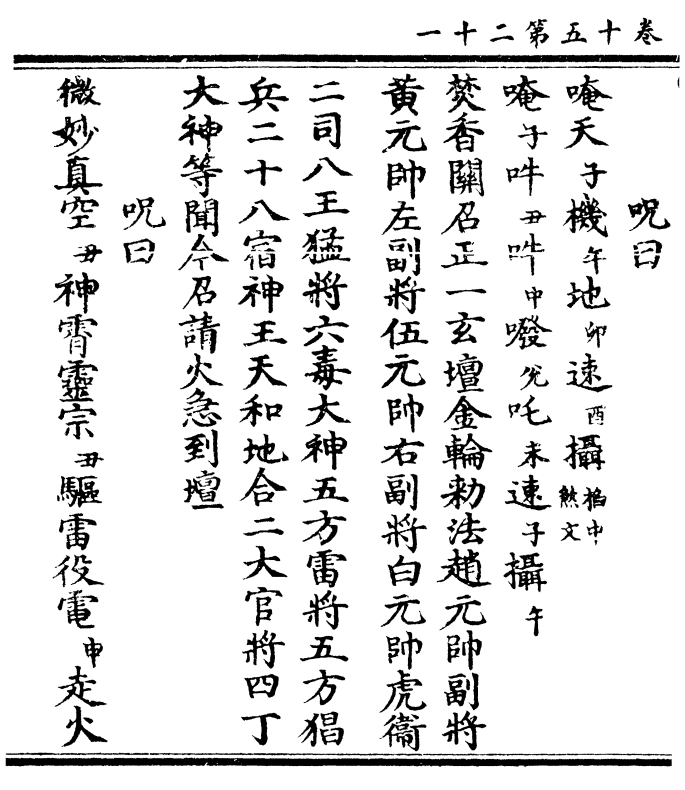 卷十五第二十一
呪曰
唵天子機午地卯速酉攝掐中煞文
唵子吽丑吽申㗶兊吒未速子攝午
焚香關召正一玄壇金輪勑法趙元帥副將
黃元帥左副將伍元帥右副將白元帥虎衞
二司八王猛將六毒大神五方雷將五方猖
兵二十八宿神王天和地合二大官將四丁
大神等聞今召請火急到壇
呪曰
微妙真空丑神霄靈宗丑驅雷役電申走火